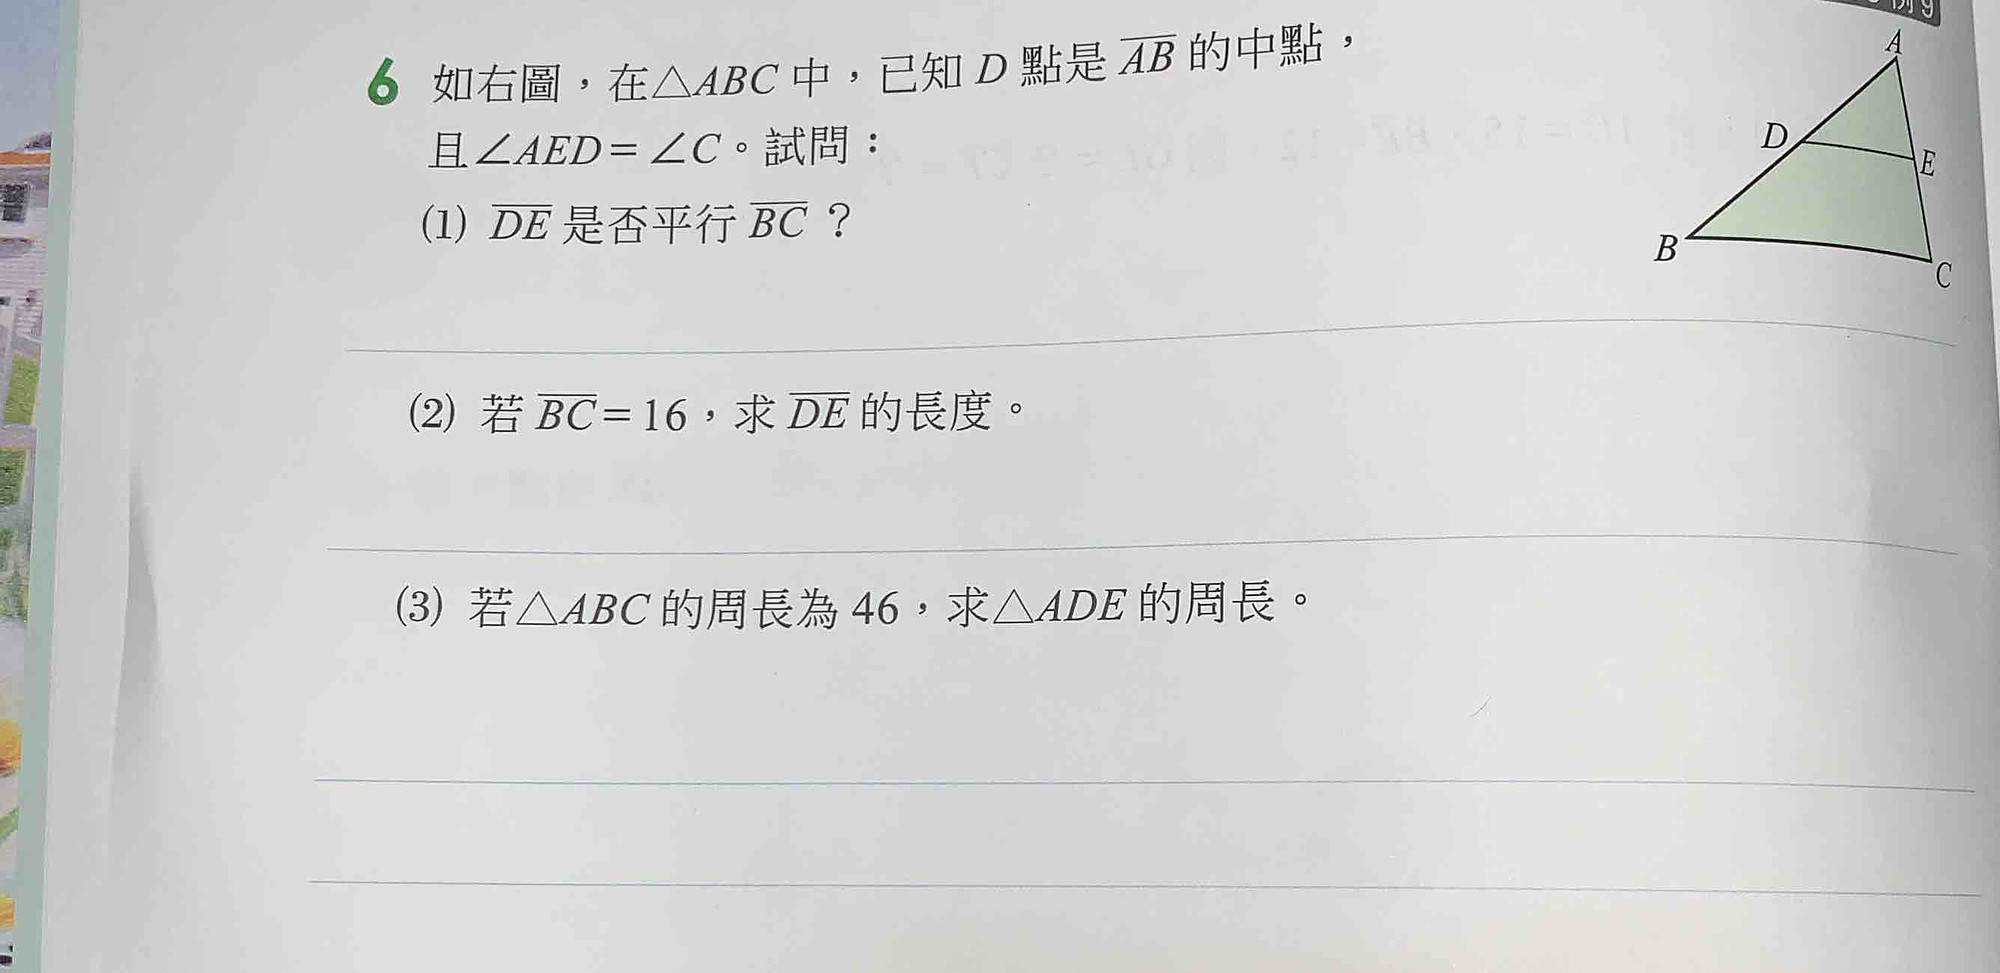 例9
6 如右圖,在△ABC 中,已知 D 點是 AB 的中點,
且∠AED=∠C。試問:
(1) DE 是否平行 BC ?
A
D
E
B
C
(2) 若 BC=16,求 DE 的長度。
(3) 若△ABC 的周長為 46,求△ADE 的周長。